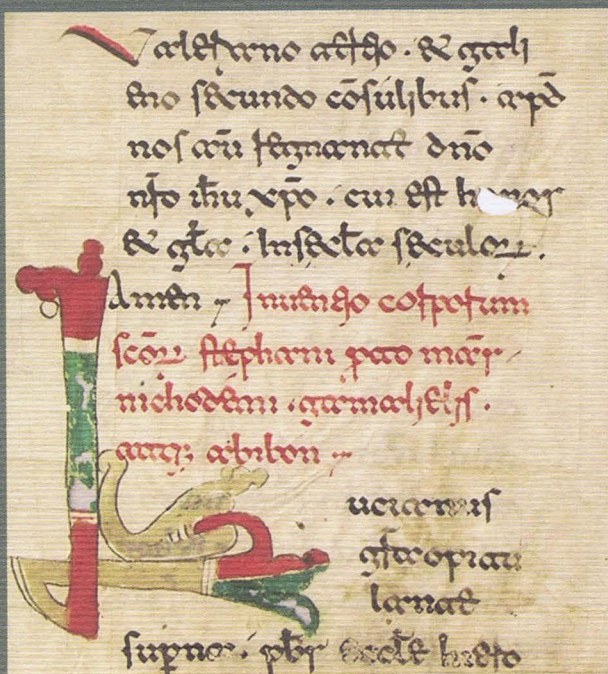 Valeriano tertio · & galli
eno secundo co̅sulibus · apd̅
nos au̅ regnante dn̅o
nr̅o ih̅u xp̅o · cui est honor
& gl̅a · In secl̅a seculoꝝ ·
Amen ·,· Inuentio corporum
sc̅oꝝ stephani proto mar̅ ·
nichodemi · gamalielis ·
atq; abibon ·,·
Lucianus
gr̅a opitu
lante
sup̅na · pb̅r eccl̅e hiero